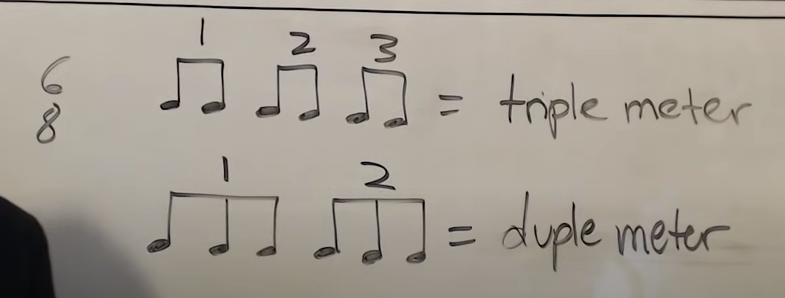 1 2 3
6
8 = triple meter
1 2
= duple meter